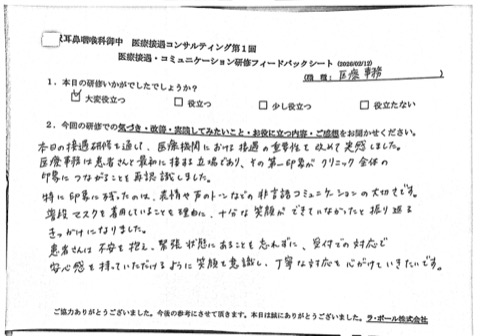 耳鼻咽喉科御中　医療接遇コンサルティング第1回
医療接遇・コミュニケーション研修フィードバックシート (2026/02/12)
1. 本日の研修いかがでしたでしょうか？ (職種：医療事務)
☑ 大変役立つ　□ 役立つ　□ 少し役立つ　□ 役立たない
2. 今回の研修での気づき・改善・実践してみたいこと・お役に立つ内容・ご感想をお聞かせください。
本日の接遇研修を通して、医療機関における接遇の重要性を改めて実感しました。
医療事務は患者さんと最初に接する立場であり、その第一印象がクリニック全体の
印象につながることを再認識しました。
特に印象に残ったのは、表情や声のトーンなどの非言語コミュニケーションの大切さです。
普段マスクを着用していることを理由に、十分な笑顔ができていなかったと振り返る
きっかけになりました。
患者さんは不安を抱え、緊張状態にあることを忘れずに、受付での対応で
安心感を持っていただけるように笑顔を意識し、丁寧な対応を心がけていきたいです。
ご協力ありがとうございました。今後の参考にさせて頂きます。本日は誠にありがとうございました。ラ・ポール株式会社